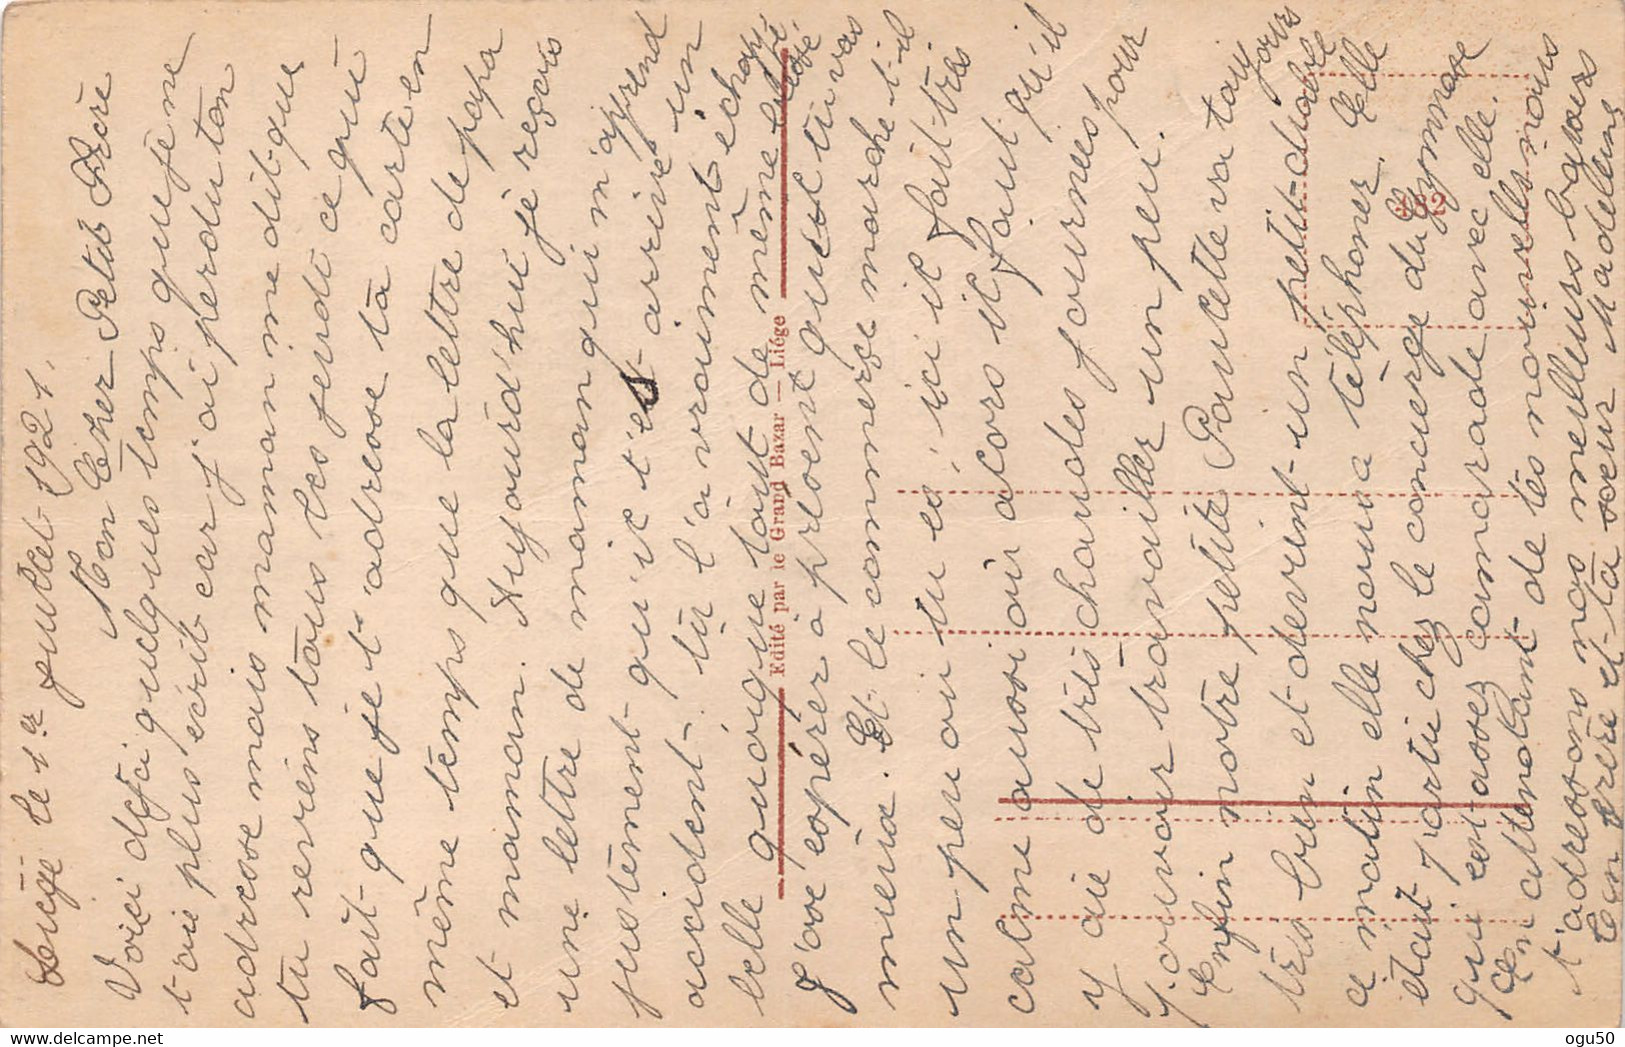 Liège le 1er Juillet 1921.
Mon Cher Petit Frère
Voici déjà quelques temps que je ne
t'aie plus écrit car j'ai perdu ton
adresse mais maman me dit que
tu reviens tous les jeudi ce qui
fait que je t'adresse ta carte en
même temps que la lettre de papa
et maman. Aujourd'hui je reçois
une lettre de maman qui m'apprend
justement qu'il t'est arrivé un
accident. tu l'a vraiment échappé
belle quoique tout de même blessé
J'ose espérer à présent que tu vas
mieux. Et le commerce marche-t-il
un peu ou tu es, ici il fait très
calme aussi ou alors il faut qu'il
y aie de très chaudes journées pour
pouvoir travailler un peu.
Enfin notre petite Paulette va toujours
très bien et devient un petit diable
ce matin elle nous a téléphoner. Elle
était partie chez le concierge du Gymnase
qui est assez camarade avec elle.
En attendant de tes nouvelles nous
t'adressons nos meilleurs baisers
Ton frère et ta soeur Madeleine
Edité par le Grand Bazar — Liége
ogu50